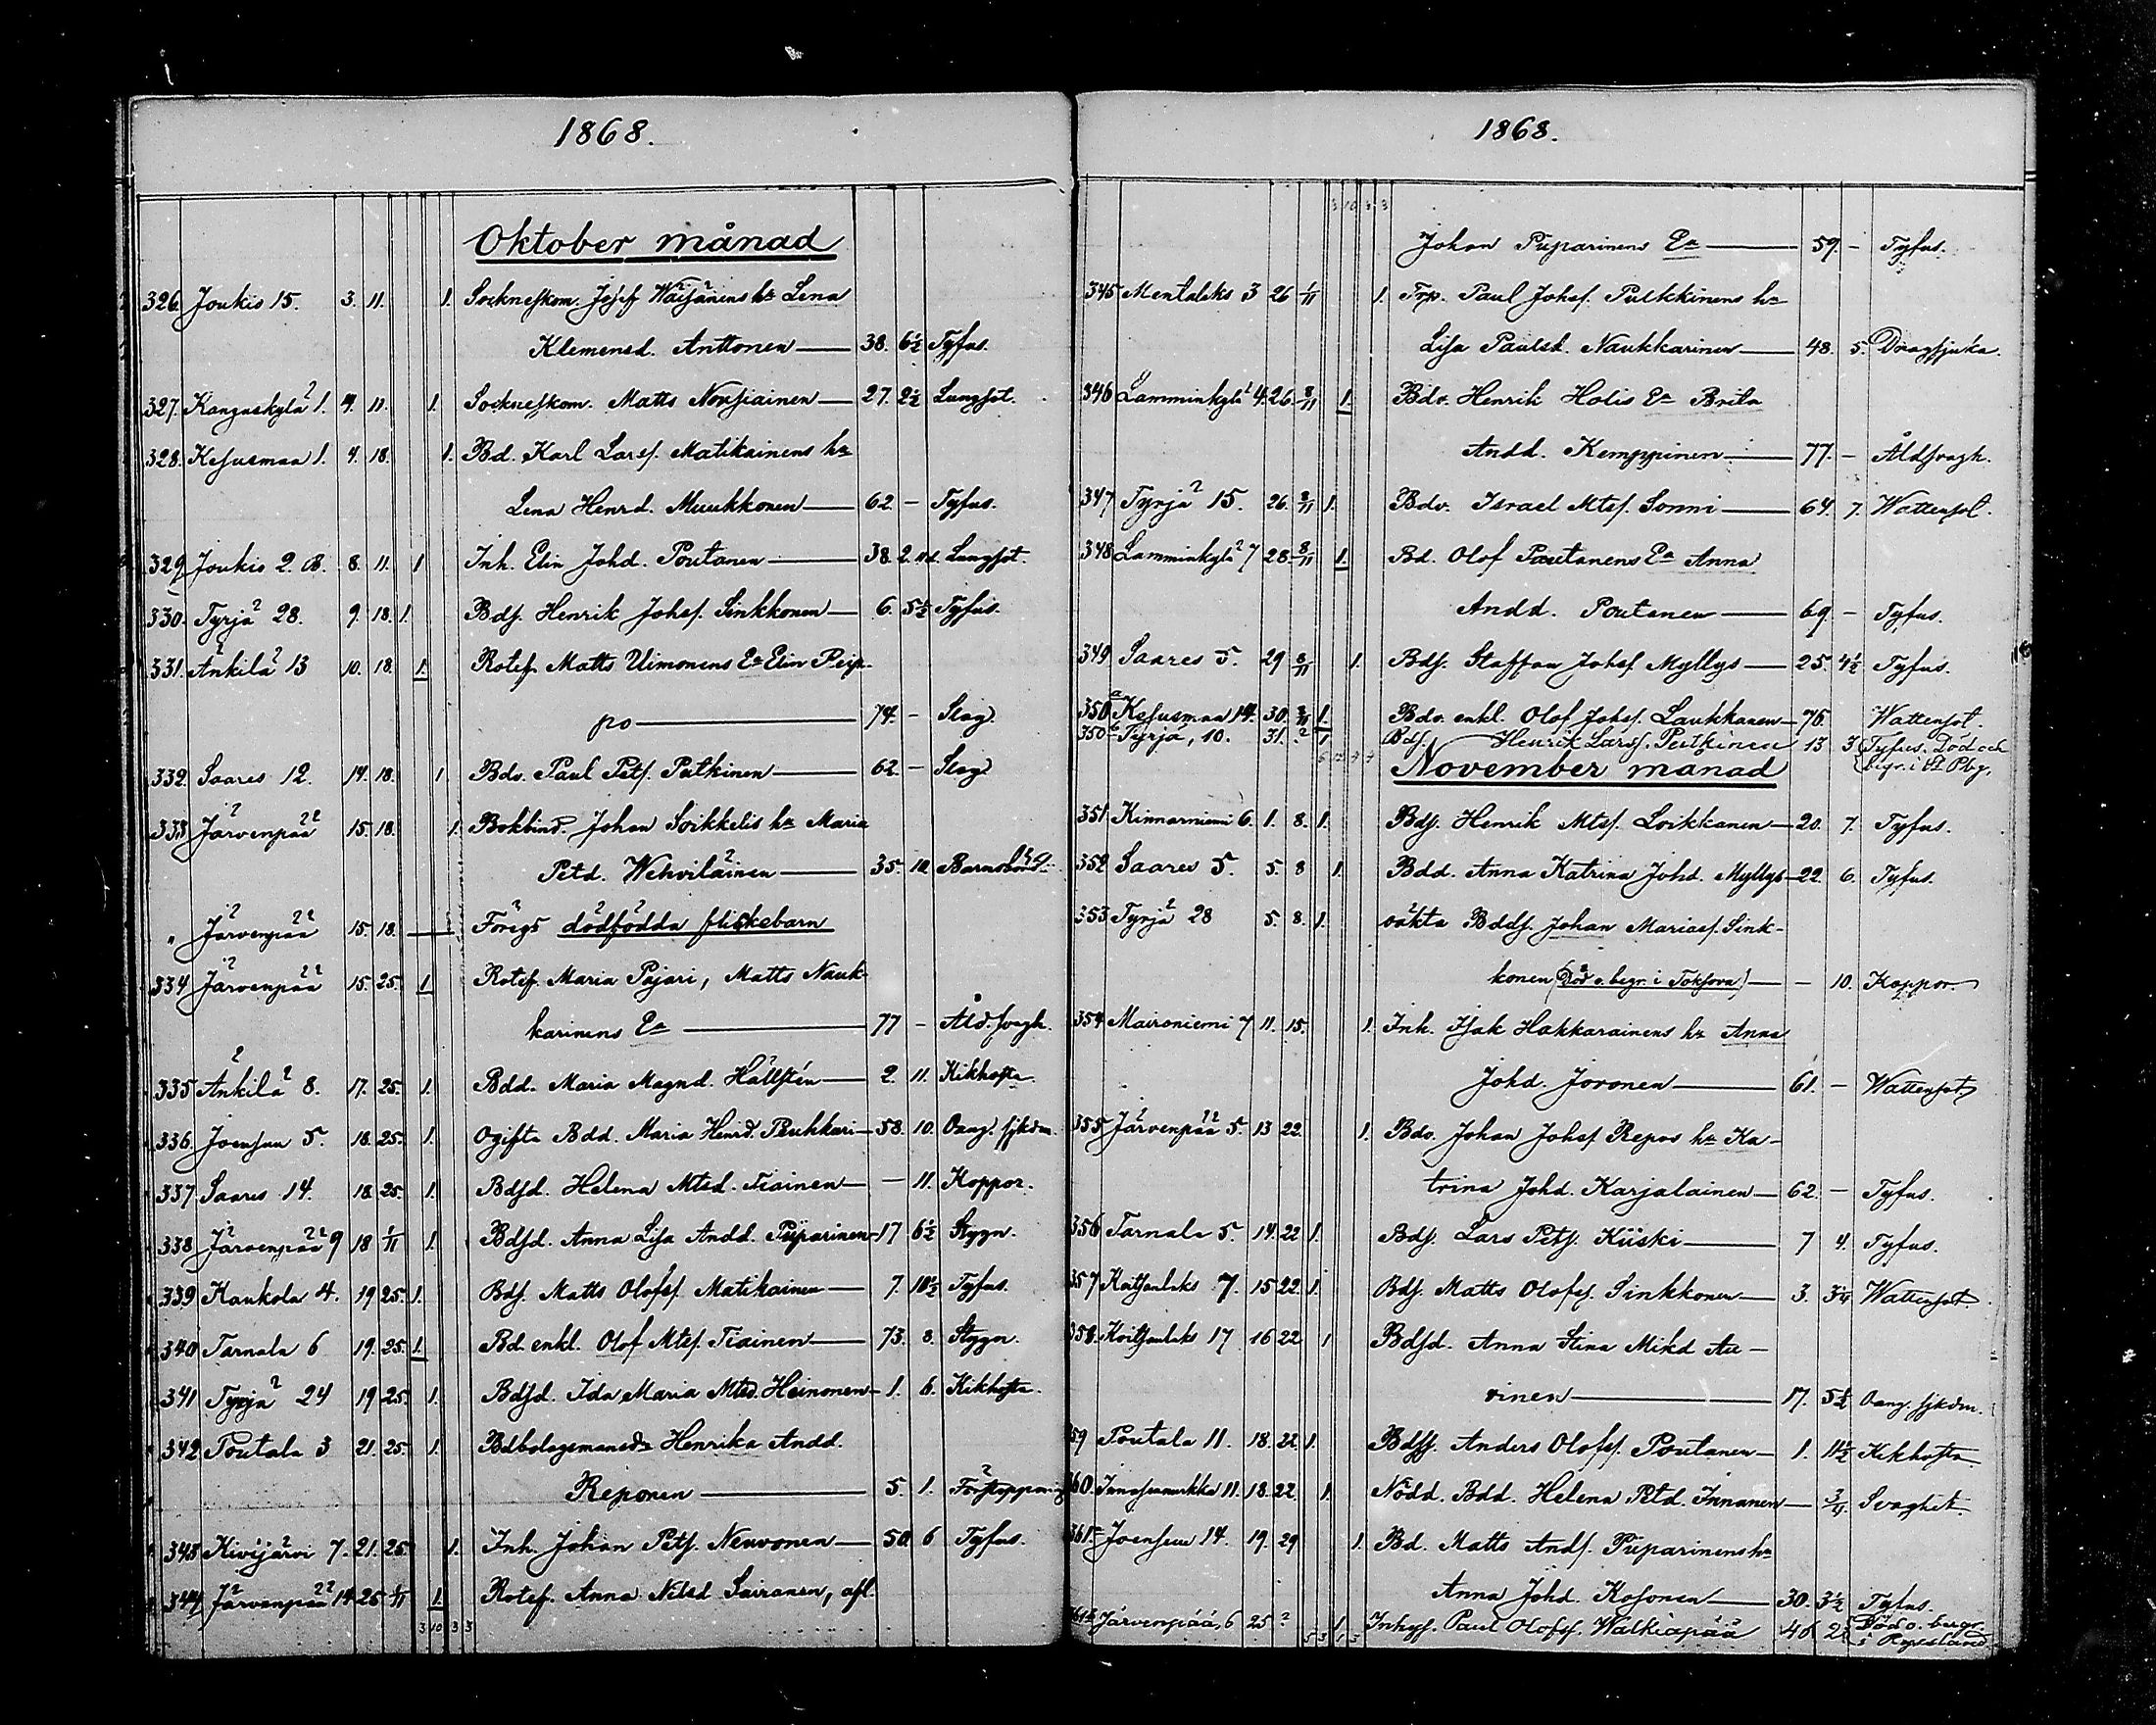 1868.
Oktober månad
326. Joukis 15. 3. 11. 1. Socknefkom. Josef Wäisänens h:u Lena
Klemensd. Anttonen 38. 6½ Tyfus.
327. Kangaskylä 1. 4. 11. 1. Socknefkom. Matts Nousiainen 27. 2½ Lungsot.
328. Kesusmaa 1. 4. 18. 1. Bd. Karl Larsf. Matikainens h:u
Lena Henrd. Muukkonen 62 – Tyfus.
329. Joukis 2. B. 8. 11. 1 Inh. Elin Johd. Poutanen 38. 2. Lungsot.
330. Tyrjä 28. 9. 18. 1. Bds. Henrik Johsf. Sinkkonen 6. 5½ Tyfus.
331. Änkilä 13 10. 18. 1. Rotef. Matts Uimonens E:a Elin Peip-
po 74. – Slag.
332. Saares 12. 14. 18. 1 Bdv. Paul Petf. Putkinen 62 – Slag
333 Järvenpää 15. 18. 1. Bokbind. Johan Soikkelis h:u Maria
Petd. Wehviläinen 35. 10. Barnsbörd.
" Järvenpää 15. 18. Föregs dödfödda flickebarn
334 Järvenpää 15. 25. 1 Rotef. Maria Pajari, Matts Nauk-
karinens E:a 77 – Åld.svagh.
335 Änkilä 8. 17. 25. 1. Bdd. Maria Magnd. Hällstén 2. 11. Kikhosta.
336. Joensuu 5. 18. 25. 1. Ogifta Bdd. Maria Henrd. Peuhkuri 58. 10. Oang. sjkdm.
337 Saares 14. 18. 25. 1. Bdsd. Helena Mtsd. Tiainen – 11. Koppor.
338 Järvenpää 9 18 1/11 1. Bdsd. Anna Lisa Andd. Puparinen 17 6½ Stygn.
339 Kaukola 4. 19 25. 1. Bds. Matts Olofsf. Matikainen 7. 10½ Tyfus.
340 Tarnala 6 19. 25. 1. Bd. enkl. Olof Mtsf. Tiainen 73. 8. Stygn.
341 Tyrjä 24 19 25. 1. Bdsd. Ida Maria Mtsd. Heinonen 1. 6. Kikhosta.
342 Poutala 3 21. 25. 1. Bdbolagsmansd:r Henrika Andd.
Reponen 5. 1. Förstoppning
343 Kivijärvi 7. 21. 25. 1. Inh. Johan Petf. Neuvonen 50 6 Tyfus.
344 Järvenpää 14 25 1/11 1. Rotef. Anna Nilsd Sairanen, afl.
3 10 3 3
1868.
3 10 3 3
Johan Puparinens E:a 59. – Tyfus.
345 Mentalaks 3 26 1/11 1. Trp. Paul Johsf. Pulkkinens h:u
Lisa Paulsd. Naukkarinen 48. 5. Dragsjuka.
346 Lamminkylä 4. 26. 8/11 1. Bdv. Henrik Holis E:a Brita
Andd. Kemppinen 77. – Åldsvagh.
347 Tyrjä 15. 26. 8/11 1. Bdv. Israel Mtsf. Sonni 64. 7. Wattensot.
348 Lamminkylä 7 28. 8/11 1. Bd. Olof Poutanens E:a Anna
Andd. Poutanen 69 – Tyfus.
349 Saares 5. 29 8/11 1. Bds. Staffan Johsf Myllys 25. 4½ Tyfus.
350 a Kesusmaa 14. 30. 8/11 1. Bdv. enkl. Olof Johsf. Laukkanen 76. Wattensot.
350 b Tyrjä, 10. 31. ? 1 Bds. Henrik Larsf. Pulkinen 13 3 Tyfus. Död och
begr. i St Pbg.
November månad
351 Kinnarniemi 6. 1. 8. 1. Bds. Henrik Mtsf. Loikkanen 20. 7. Tyfus.
352 Saares 5. 5. 8 1. Bdd. Anna Katrina Johd. Myllys 22. 6. Tyfus.
353 Tyrjä 28 5. 8. 1. oäkta Bdds. Johan Mariaef. Sink-
konen (Död o. begr. i Toksova) – 10. Koppor.
354 Maironiemi 7 11. 15. 1. Inh. Isak Hakkarainens h:u Anna
Johd. Joronen 61. – Wattensot.
355 Järvenpää 5. 13 22. 1. Bdv. Johan Johsf Repos h:u Ka-
trina Johd. Karjalainen 62. – Tyfus.
356 Tarnala 5. 14. 22 1. Bds. Lars Petf. Kiiski 7 4. Tyfus.
357 Koitsanlaks 7. 15 22. 1. Bds. Matts Olofsf. Sinkkonen 3. 3/4 Wattensot.
358. Koitsanlaks 17 16 22 1 Bdsd. Anna Stina Mikd Au-
vinen 17. 5½ Oang. sjkdm.
359 Poutala 11. 18. 22 1. Bdss. Anders Olofsf. Poutanen 1. 11½ Kikhosta
360. 11. 18. 22. 1. Nödd. Bdd. Helena Petd. Innanen 3/4 Svaghet.
361 a Joensuu 14. 19. 29 1. Bd. Matts Andf. Puparinens h:u
Anna Johd. Kosonen 30. 3½ Tyfus.
361 b Järvenpää, 6 25 ? 1. Inhys. Paul Olofsf. Walkiapää 46 2 Död o. begr.
i Ryssland